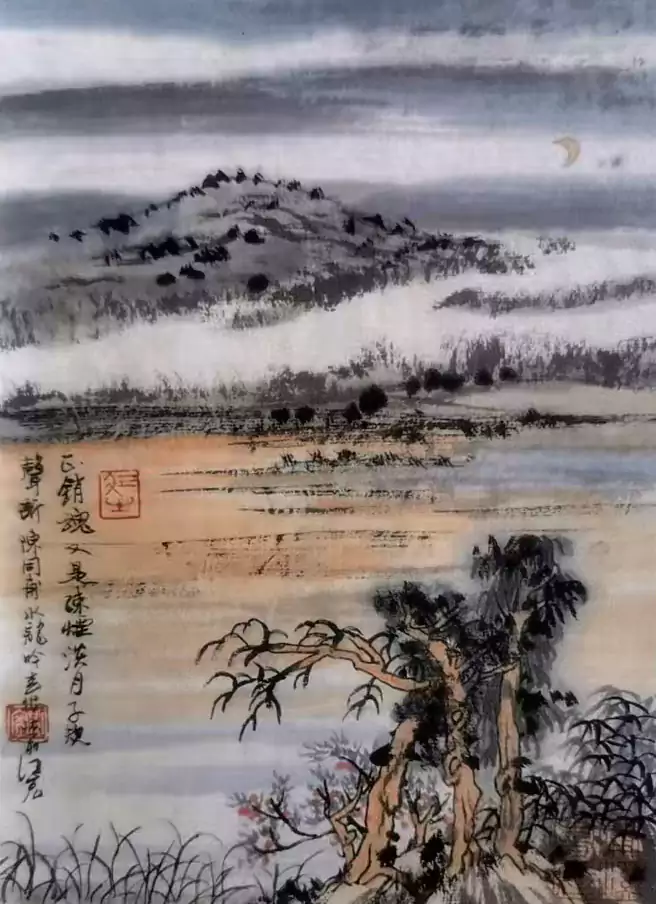 正銷魂又是疎煙淡月子規
聲斷陳同甫水龍吟意